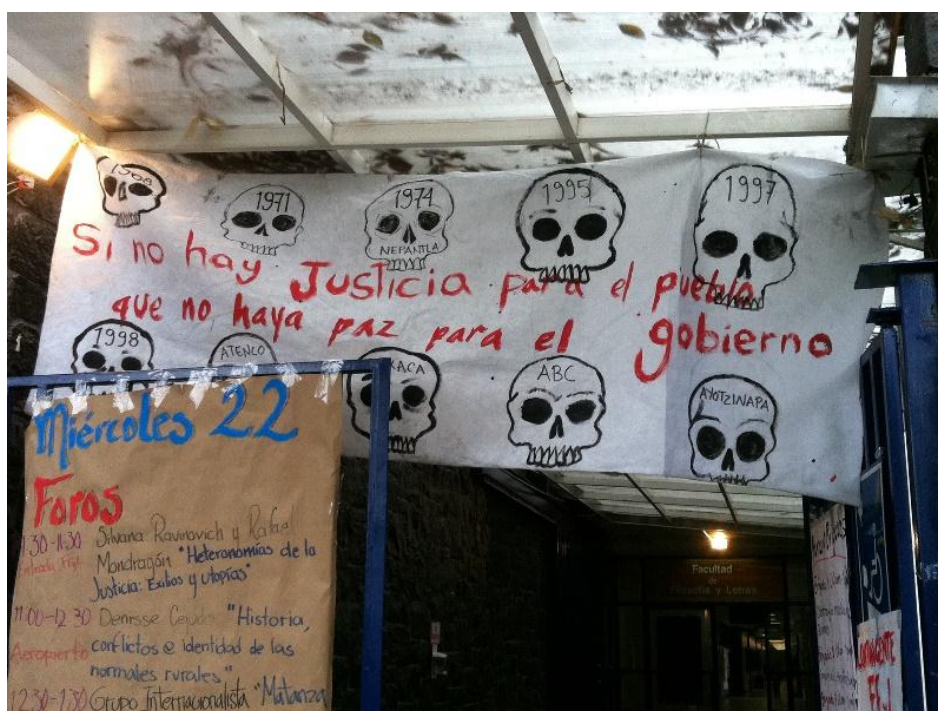 1968
1971
1974
NEPANTLA
1995
1997
Si no hay Justicia para el pueblo
que no haya paz para el gobierno
1998
ATENCO
ABC
AYOTZINAPA
Miércoles 22
Foros
Silvana Ravinovich y Rafael
Mondragón "Heteronomías de la
Justicia: Exilios y utopías"
11:00-12:30 Denisse "Historia,
Aeropuerto conflictos e identidad de las
normales rurales"
12:30-1:30 Grupo Internacionalista "Matanza
Facultad
de
Filosofía y Letras